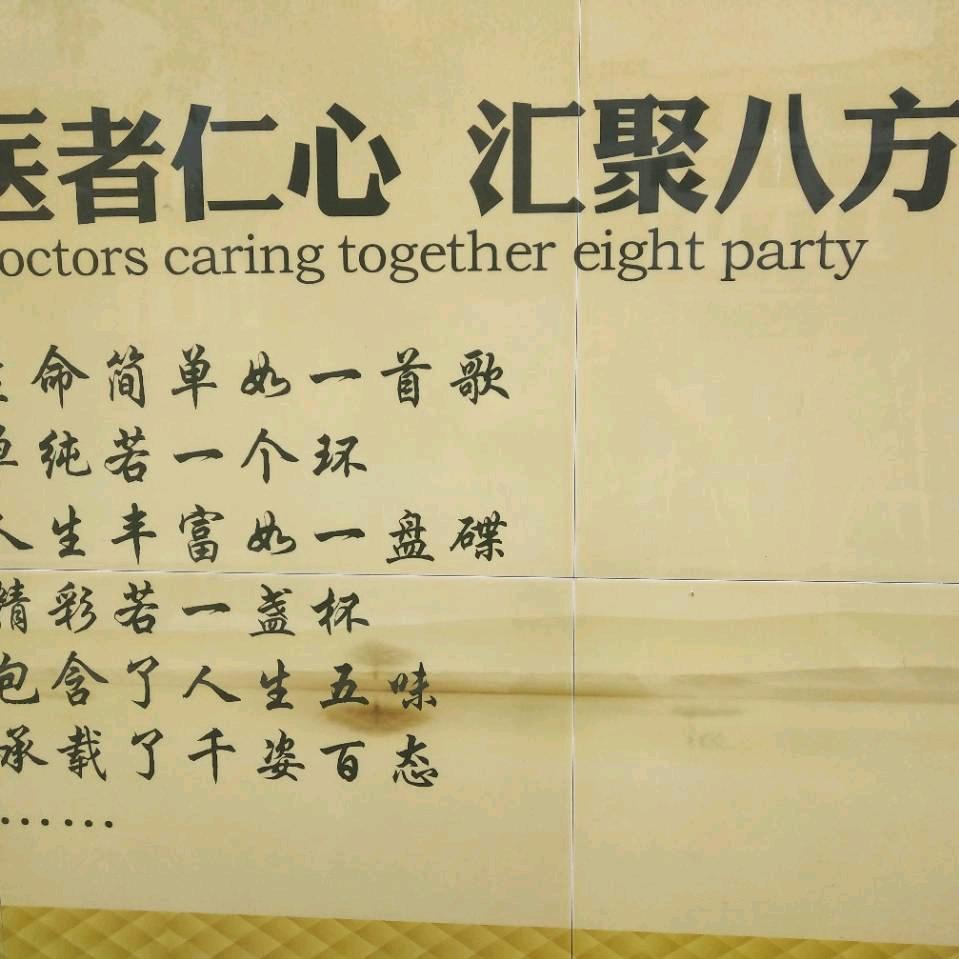 医者仁心 汇聚八方
octors caring together eight party
生命简单如一首歌
单纯若一个环
人生丰富如一盘碟
精彩若一盏杯
包含了人生五味
承载了千姿百态
······